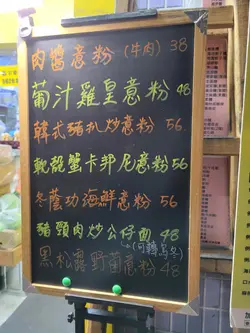 肉醬意粉 (牛肉) 38
葡汁雞皇意粉 48
韓式豬扒炒意粉 56
軟殼蟹卡邦尼意粉 56
冬蔭功海鮮意粉 56
豬頸肉炒公仔面 48
(可轉烏冬)
黑松露野菌意粉 48